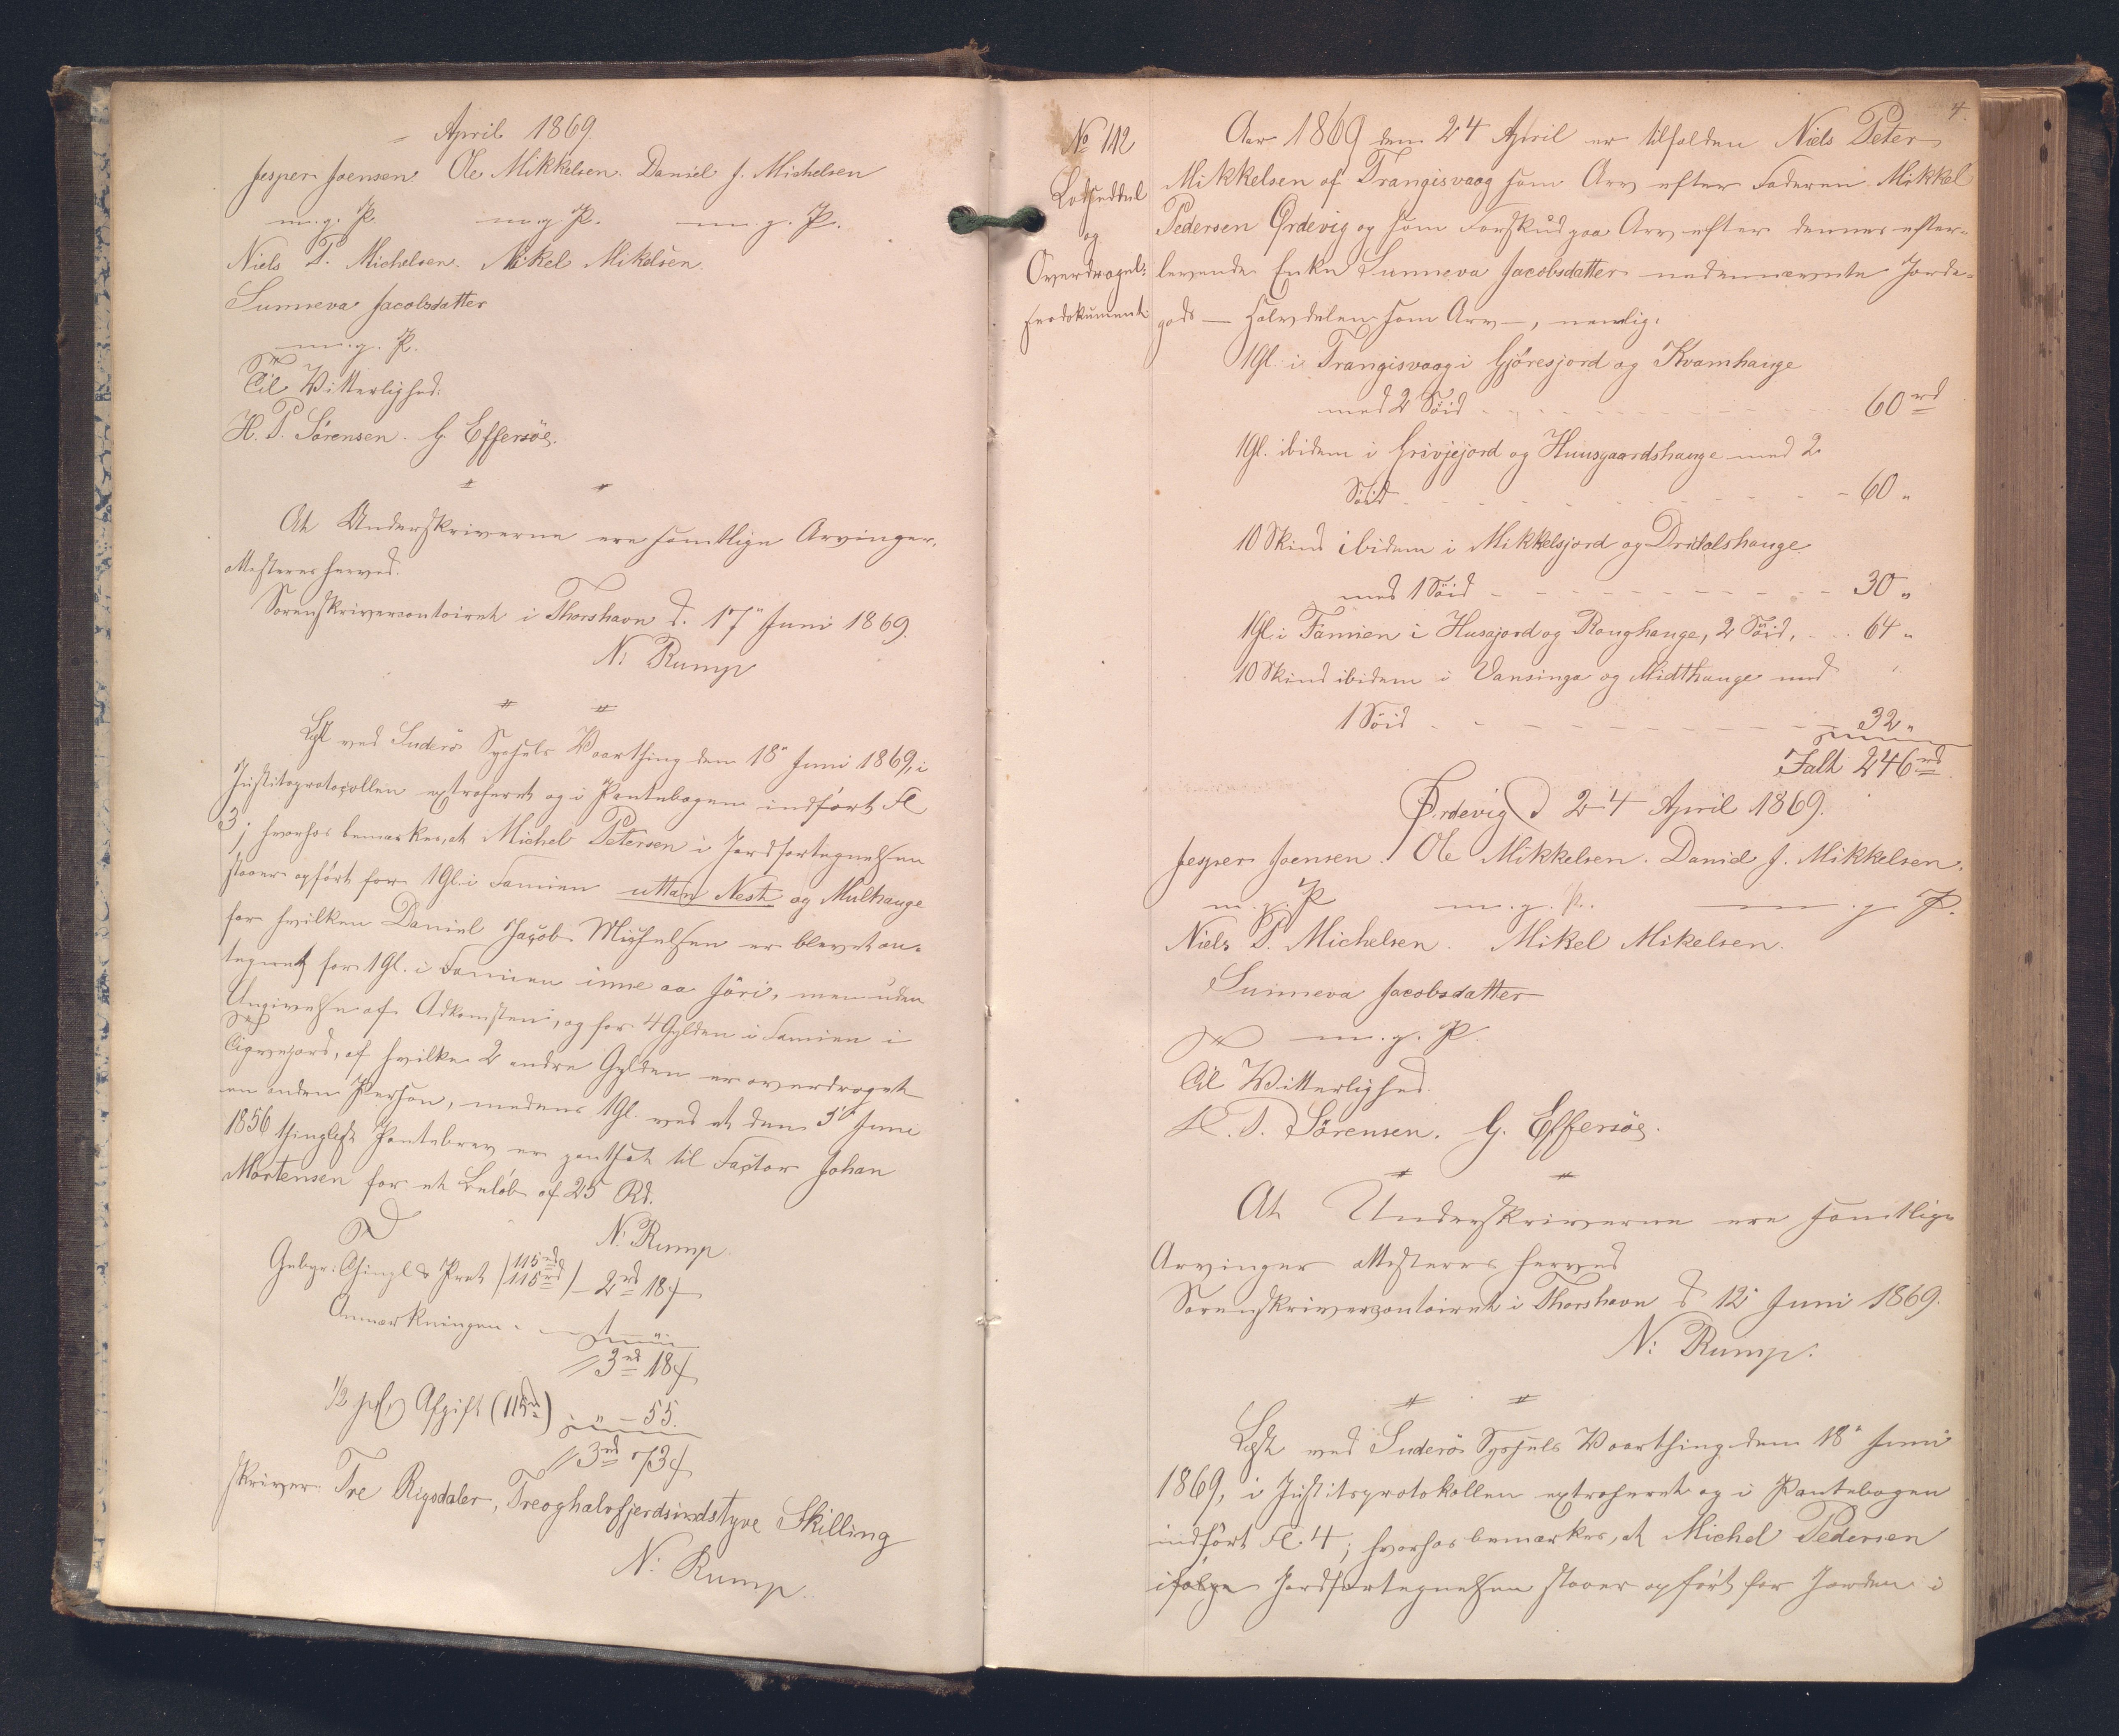 April 1869
Jesper Joensen. Ole Mikkelsen. Daniel J. Michelsen
m. g. P. m. g. P. m. g. P.
Niels P. Michelsen. Mikel Mikelsen.
Sunneva Jacobsdatter
m. g. P.
Til Vitterlighed:
H. P. Sörensen. G. Effersöe.
At Underskriverne ere samtlige Arvinger,
attesteres herved.
Sorenskrivercontoiret i Thorshavn d. 17" Juni 1869.
N: Rump
Læst ved Suderö Syssels Vaarthing den 18" Juni 1869, i
Justitsprotocollen extraheret og i Pantebogen indfört Fol.
3; hvorhos bemærkes, at Michel Petersen i Jordfortegnelsen
staaer opfört for 1 Gl. i Famien uttan Nesh og Mulhauge
for hvilken Daniel Jacob Michelsen er blevet an-
tegnet for 1 Gl. i Famien inne aa Jöri, men uden
Angivelse af Adkomsten, og for 4 Gylden i Famien i
Tigvejord, af hvilke 2 andre Gylden er overdraget
en anden Person, medens 1 Gl. ved et den 5te Juni
1856 thinglæst Pantebrev er pantsat til Factor Johan
Mortensen for et Belöb af 25 Rd.
N: Rump
Gebyr: Thingl & Prot (115rd 115rd) - 2rd 18 s
Anmærkningen - 1 "
3rd 18 s
1/2 pCt Afgift (115rd) " - 55.
3rd 73 s
skriver Tre Rigsdaler, Treoghalvfjerdsindstyve Skilling
N: Rump.
4.
No 112
Lodseddel
og
Overdragel-
sesdokument
Aar 1869 den 24 April er tilfalden Niels Peter
Mikkelsen af Trangisvaag som Arv efter Faderen Mikkel
Pedersen Ördevig og som Forskud paa Arv efter dennes efter-
levende Enke Sunneva Jacobsdatter nedennævnte Jorde-
gods — Halvdelen som Arv —, nemlig:
1 Gl. i Trangisvaag i Gjöresjord og Kvamhauge
med 2 Söid - - - 60rd
1 Gl. ibidem i Grivjejord og Huusgaardshauge med 2
Söid - - - 60 "
10 Skind ibidem i Mikkelsjord og Dridalshauge
med 1 Söid - - - 30 "
1 Gl. i Famien i Husajord og Roughauge, 2 Söid, - - 64 "
10 Skind ibidem i Vansinga og Midthauge med
1 Söid - - - 32 "
Ialt 246rd
Ördevig d 24 April 1869.
Jesper Joensen. Ole Mikkelsen. Daniel J. Mikkelsen.
m. g. P. m. g. P. m. g. P.
Niels P. Michelsen. Mikel Mikelsen.
Sunneva Jacobsdatter
m. g. P.
Til Vitterlighed.
H. P. Sörensen. G. Effersöe.
At Underskriverne ere samtlige
Arvinger attesteres herved
Sorenskrivercontoiret i Thorshavn d 12 Juni 1869.
N: Rump.
Læst ved Suderö Syssels Vaarthing den 18" Juni
1869, i Justitsprotokollen extraheret og i Pantebogen
indfört Fol. 4; hvorhos bemærkes, at Michel Pedersen
ifölge Jordfortegnelsen staaer opfört for Jorden i